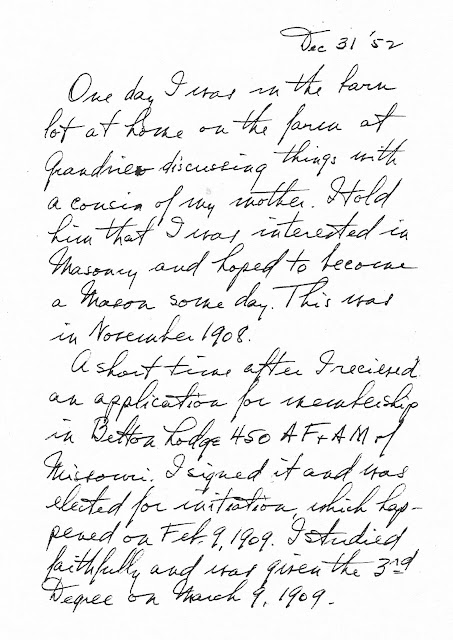 Dec 31 '52
One day I was in the barn
lot at home on the farm at
Grandview discussing things with
a cousin of my mother. I told
him that I was interested in
Masonry and hoped to become
a Mason some day. This was
in November 1908.
A short time after I recieved
an application for membership
in Belton Lodge 450 A F & A M of
Missouri. I signed it and was
elected for initiation, which hap-
pened on Feb. 9, 1909. I studied
faithfully and was given the 3rd
Degree on March 9, 1909.